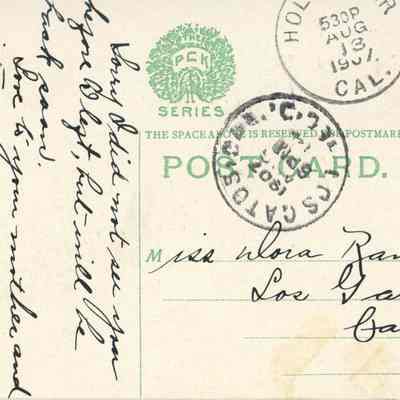 PCK
SERIES
HOL
530P
AUG
13
1907
CAL.
THE SPACE ABOVE IS RESERVED FOR POSTMAR
POST CARD.
LOS GATOS
1907
Miss Dora Ran
Los Ga
Ca
Sorry I did not see you
before I left, but will be
back soon.
Love to your mother and